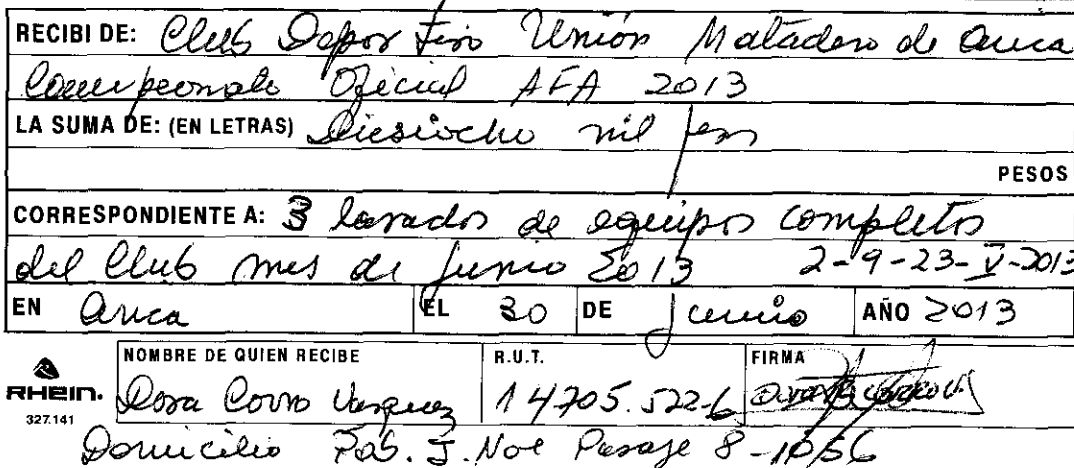 RECIBI DE: Club Deportivo Unión Matadero de Arica
Campeonato Oficial AFA 2013
LA SUMA DE: (EN LETRAS) Diesiocho mil pesos
PESOS
CORRESPONDIENTE A: 3 lavados de equipos completos
del Club mes de Junio 2013 2-9-23-V-2013
EN Arica EL 30 DE Junio AÑO 2013
NOMBRE DE QUIEN RECIBE R.U.T. FIRMA
RHEIN. Rosa Corro Vasquez 14705.522-6
327.141
Domicilio Pob. J. Noe Pasaje 8-1056